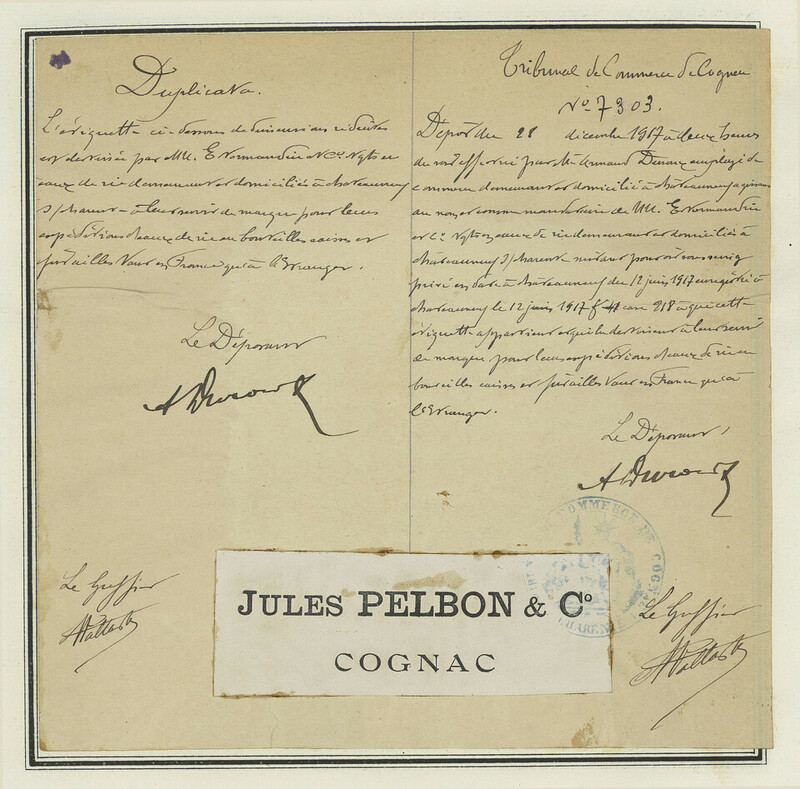 Duplicata.
L'étiquette ci-dessous de dimensions réduites
est destinée par MM. E Normandin & Cie Ngts en
eaux de vie demeurant et domiciliés à châteauneuf
s/charente à leur servir de marque pour leurs
expéditions d'eaux de vie en bouteilles caisses et
futailles tant en France qu'à l'Etranger.
Le Déposant
Le Greffier
Tribunal de Commerce de Cognac
No 7303.
Dépôt du 28 décembre 1917 à deux heures
du soir effectué par Mr Armand employé de
commerce demeurant et domicilié à châteauneuf agissant
au nom et comme mandataire de MM. E. Normandin
et Cie Ngts en eaux de vie demeurant et domiciliés à
châteauneuf s/charente suivant pouvoir sous seing
privé en date à châteauneuf du 12 juin 1917 enregistré à
châteauneuf le 12 juin 1917 case 218 à que cette
étiquette appartient et qu'ils destinent à leur servir
de marque pour leurs expéditions d'eaux de vie en
bouteilles caisses et futailles tant en France qu'à
l'Etranger.
Le Déposant,
COMMERCE DE COGNAC
CHARENTE
Le Greffier
JULES PELBON & Co
COGNAC